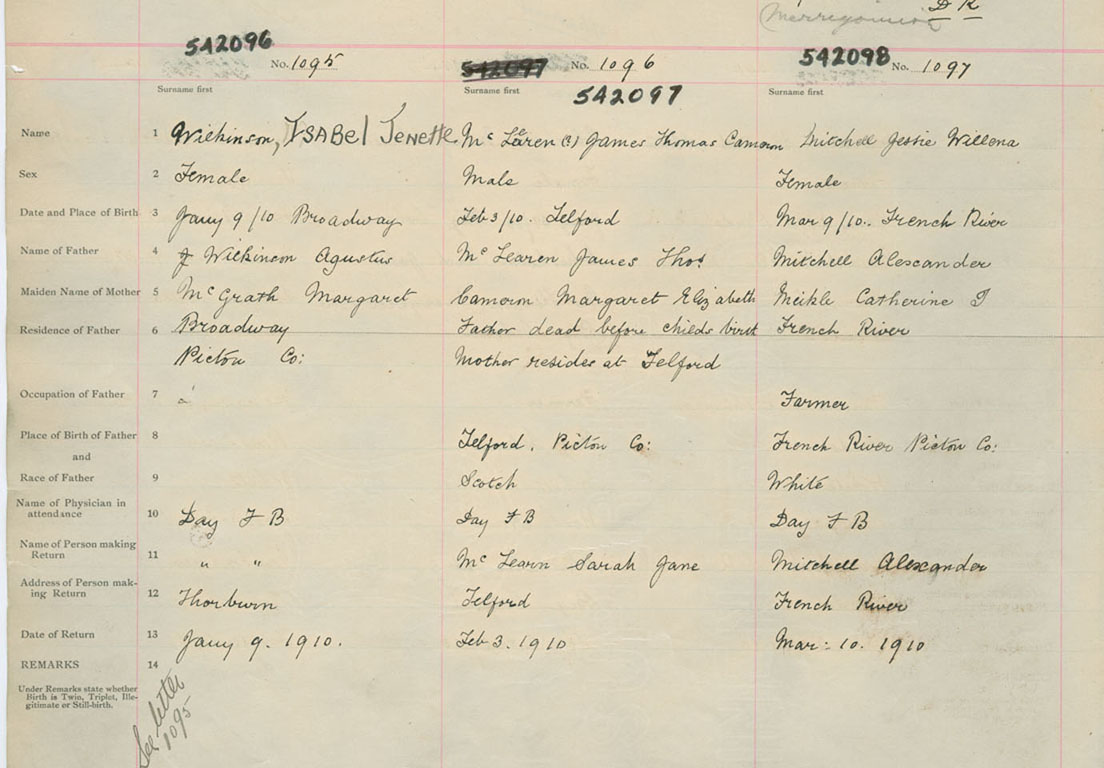 D K
Merrigomish
5A2096 5A2097 5A2098
No. 1095 No. 1096 No. 1097
5A2097
Surname first Surname first Surname first
Name 1 Wilkinson, ISABEl JENETTE McLearen (2) James Thomas Cameron Mitchell Jessie Willena
Sex 2 Female Male Female
Date and Place of Birth 3 Jany 9/10 Broadway Feb 3/10. Telford Mar 9/10.. French River
Name of Father 4 Wilkinson Agustus McLearen James Thos Mitchell Alexander
Maiden Name of Mother 5 McGrath Margaret Cameron Margaret Elizabeth Meikle Catherine J
Residence of Father 6 Broadway Father dead before childs birth French River
Pictou Co: Mother resides at Telford
Occupation of Father 7 Farmer
Place of Birth of Father 8 Telford, Pictou Co: French River Pictou Co:
and
Race of Father 9 Scotch White
Name of Physician in
attendance 10 Day F B Day F B Day F B
Name of Person making
Return 11 " " McLearn Sarah Jane Mitchell Alexander
Address of Person mak-
ing Return 12 Thorburn Telford French River
Date of Return 13 Jany 9. 1910. Feb 3. 1910 Mar: 10. 1910
REMARKS 14
Under Remarks state whether
Birth is Twin, Triplet, Ille-
gitimate or Still-birth.
See letter
1095